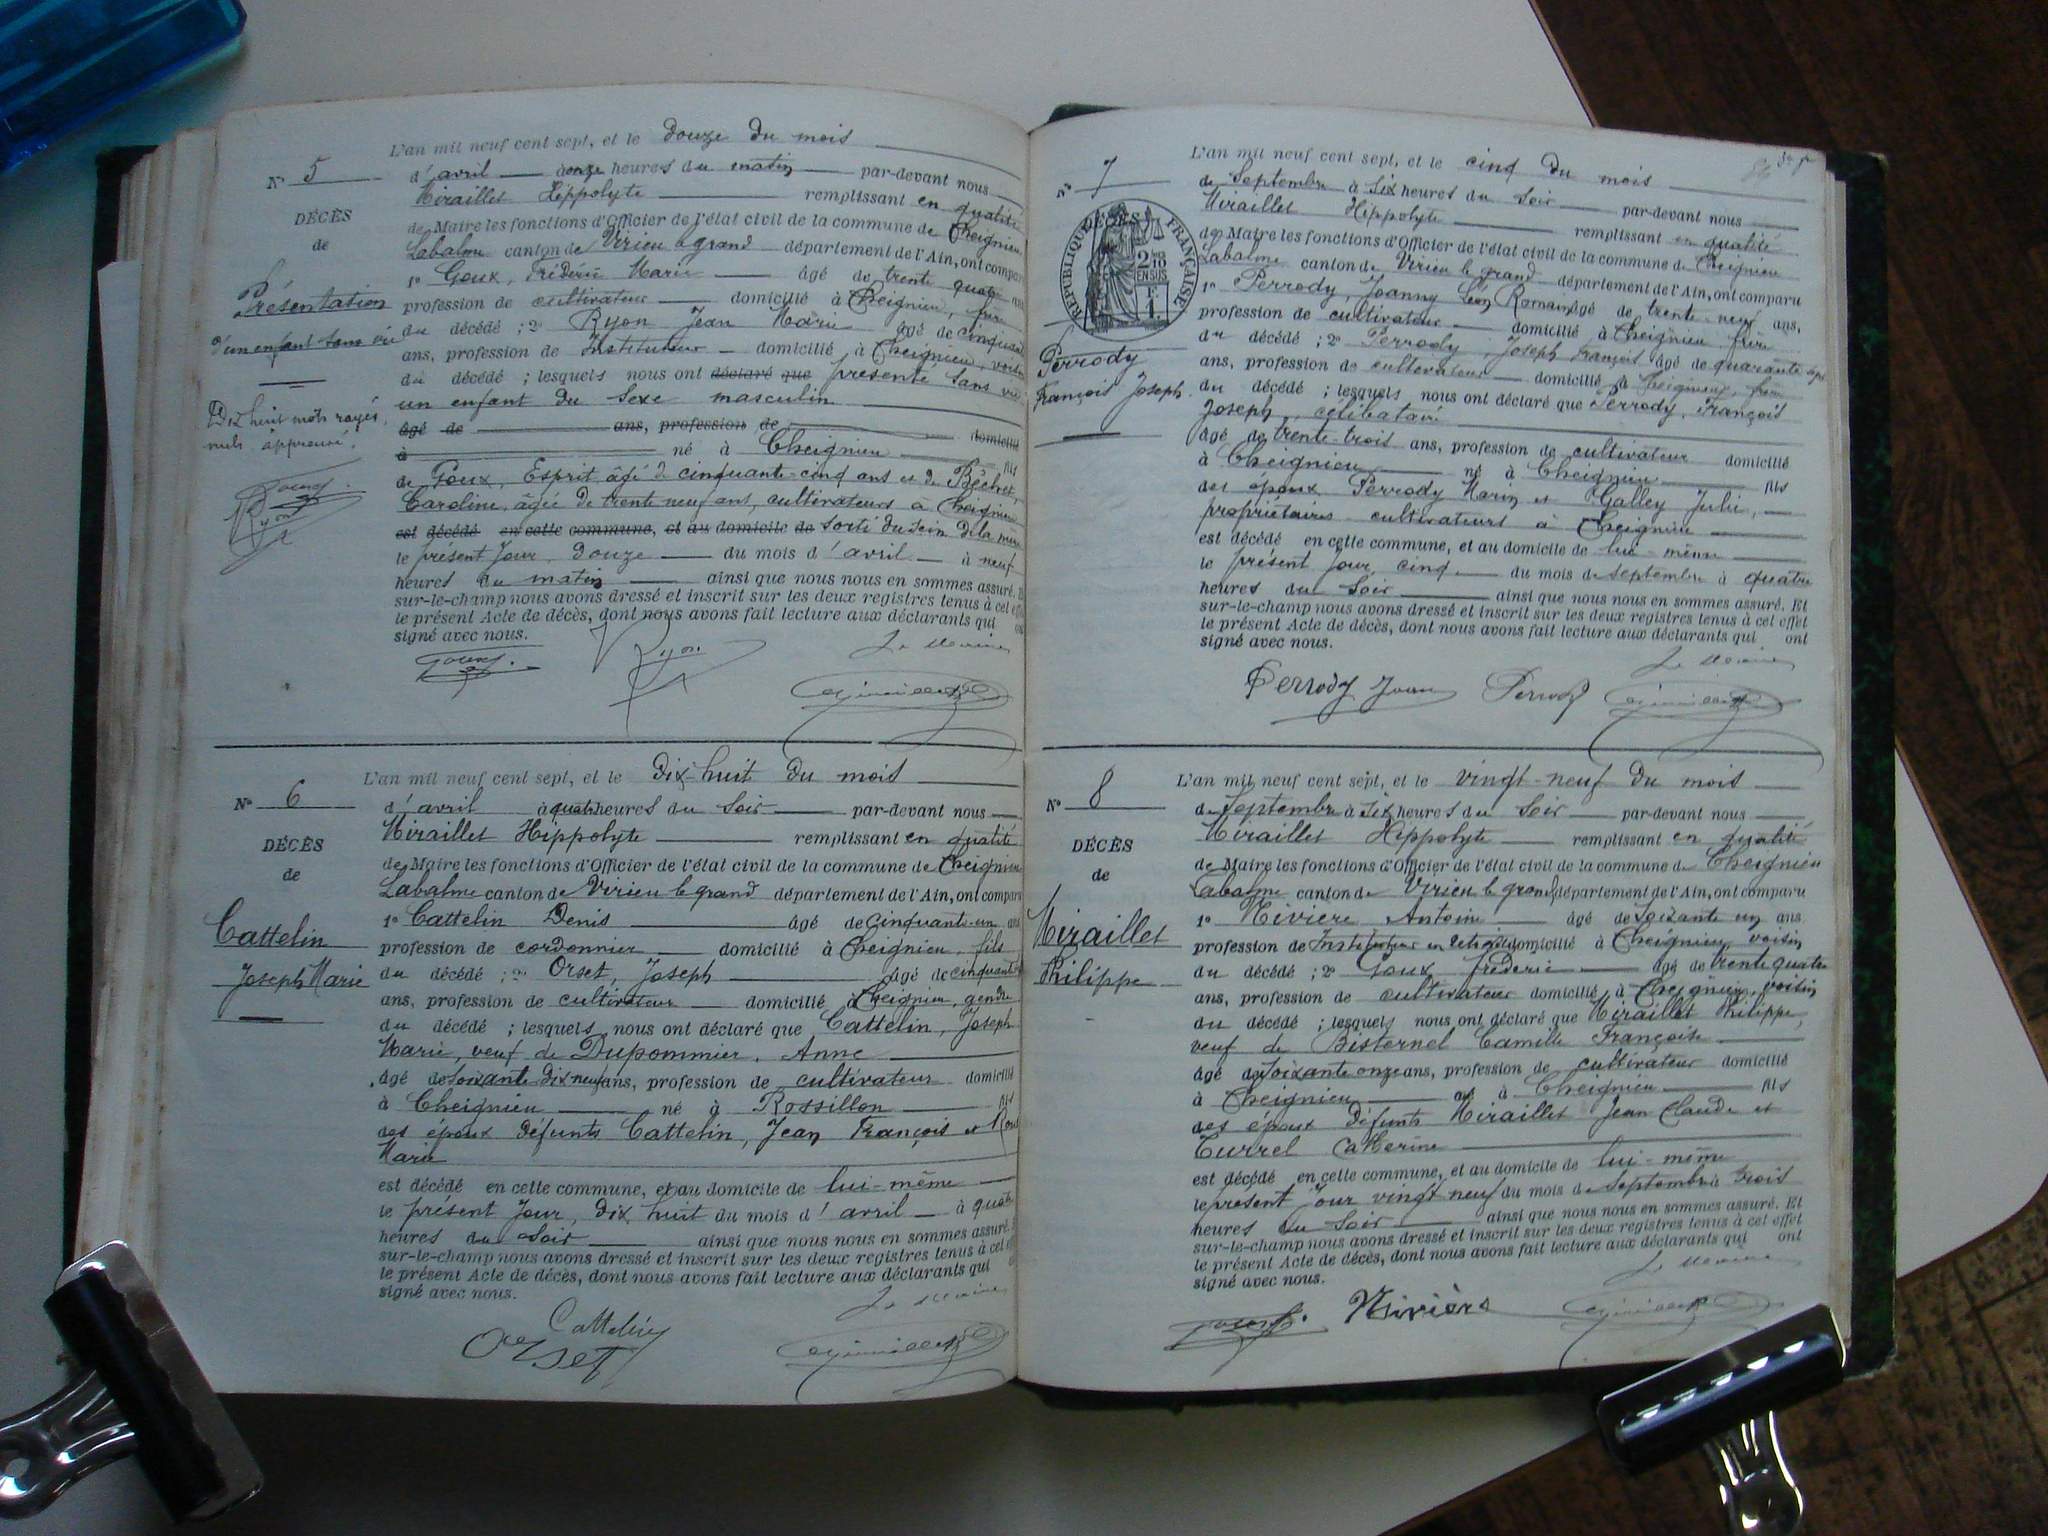 L'an mil neuf cent sept, et le douze du mois
N° 5
d'avril à onze heures du matin par-devant nous
Miraillet Hippolyte remplissant en qualité
DÉCÈS
de Maire les fonctions d'Officier de l'état civil de la commune de Cheignieu
de
Labalme canton de Virieu le grand département de l'Ain, ont comparu
1° Goux, Frédéric Marie âgé de trente quatre ans
Présentation
d'un enfant sans vie
profession de cultivateur domicilié à Cheignieu, frère
du décédé ; 2° Ryon Jean Marie âgé de cinquante
ans, profession de Instituteur domicilié à Cheignieu, voisin
du décédé ; lesquels nous ont déclaré que présenté sans vie
un enfant du sexe masculin
Dix huit mots rayés
nuls approuvé.
âgé de ans, profession de domicilié
à né à Cheignieu fils
de Goux, Esprit âgé de cinquante-cinq ans et de Béchet
Caroline, âgée de trente neuf ans, cultivateurs à Cheignieu
Goux
Ryon
est décédé en cette commune, et au domicile de sorti du sein de la mère
le présent jour, douze du mois d'avril à neuf
heures du matin ainsi que nous nous en sommes assuré.
sur-le-champ nous avons dressé et inscrit sur les deux registres tenus à cet effet
le présent Acte de décès, dont nous avons fait lecture aux déclarants qui ont
signé avec nous.
Le Maire
Goux. Ryon.
L'an mil neuf cent sept, et le dix-huit du mois
N° 6
d'avril à quatre heures du soir par-devant nous
Miraillet Hippolyte remplissant en qualité
DÉCÈS
de Maire les fonctions d'Officier de l'état civil de la commune de Cheignieu
de
Labalme canton de Virieu le grand département de l'Ain, ont comparu
Cattelin
Joseph Marie
1° Cattelin Denis âgé de cinquante-un ans
profession de cordonnier domicilié à Cheignieu, fils
du décédé ; 2° Orset, Joseph âgé de cinquante
ans, profession de cultivateur domicilié à Cheignieu, gendre
du décédé ; lesquels nous ont déclaré que Cattelin, Joseph
Marie, veuf de Dupommier, Anne
âgé de soixante dix neuf ans, profession de cultivateur domicilié
à Cheignieu né à Rossillon fils
des époux défunts Cattelin, Jean François et
Marie
est décédé en cette commune, et au domicile de lui-même
le présent jour, dix huit du mois d'avril à quatre
heures du soir ainsi que nous nous en sommes assuré.
sur-le-champ nous avons dressé et inscrit sur les deux registres tenus à cet effet
le présent Acte de décès, dont nous avons fait lecture aux déclarants qui
signé avec nous.
Le Maire
Cattelin
Orset
L'an mil neuf cent sept, et le cinq du mois
N° 7
de septembre à six heures du soir par-devant nous
Miraillet Hippolyte remplissant en qualité
DÉCÈS
RÉPUBLIQUE FRANÇAISE
2/10 EN SUS
F. 1
de Maire les fonctions d'Officier de l'état civil de la commune de Cheignieu
Labalme canton de Virieu le grand département de l'Ain, ont comparu
1° Perrody, Joanny Léon Romain âgé de trente-neuf ans,
profession de cultivateur domicilié à Cheignieu, frère
Perrody
François Joseph
du décédé ; 2° Perrody, Joseph François âgé de quarante sept
ans, profession de cultivateur domicilié à Cheignieu, frère
du décédé ; lesquels nous ont déclaré que Perrody, François
Joseph, célibataire
âgé de trente-trois ans, profession de cultivateur domicilié
à Cheignieu né à Cheignieu fils
des époux Perrody Marin et Galley Julie,
propriétaires cultivateurs à Cheignieu
est décédé en cette commune, et au domicile de lui-même
le présent jour, cinq du mois de septembre à quatre
heures du soir ainsi que nous nous en sommes assuré. Et
sur-le-champ nous avons dressé et inscrit sur les deux registres tenus à cet effet
le présent Acte de décès, dont nous avons fait lecture aux déclarants qui ont
signé avec nous.
Le Maire
Perrody Perrody
L'an mil neuf cent sept, et le vingt-neuf du mois
N° 8
de septembre à six heures du soir par-devant nous
Miraillet Hippolyte remplissant en qualité
DÉCÈS
de Maire les fonctions d'Officier de l'état civil de la commune de Cheignieu
de
Labalme canton de Virieu le grand département de l'Ain, ont comparu
Miraillet
Philippe
1° Nivière Antoine âgé de soixante un ans
profession de Instituteur en retraite domicilié à Cheignieu, voisin
du décédé ; 2° Goux Frédéric âgé de trente quatre
ans, profession de cultivateur domicilié à Cheignieu, voisin
du décédé ; lesquels nous ont déclaré que Miraillet Philippe,
veuf de Bisternel Camille Françoise
âgé de soixante onze ans, profession de cultivateur domicilié
à Cheignieu né à Cheignieu fils
des époux défunts Miraillet Jean Claude et
Turrel Catherine
est décédé en cette commune, et au domicile de lui-même
le présent jour vingt neuf du mois de septembre à trois
heures du soir ainsi que nous nous en sommes assuré. Et
sur-le-champ nous avons dressé et inscrit sur les deux registres tenus à cet effet
le présent Acte de décès, dont nous avons fait lecture aux déclarants qui ont
signé avec nous.
Le Maire
Goux. Nivière